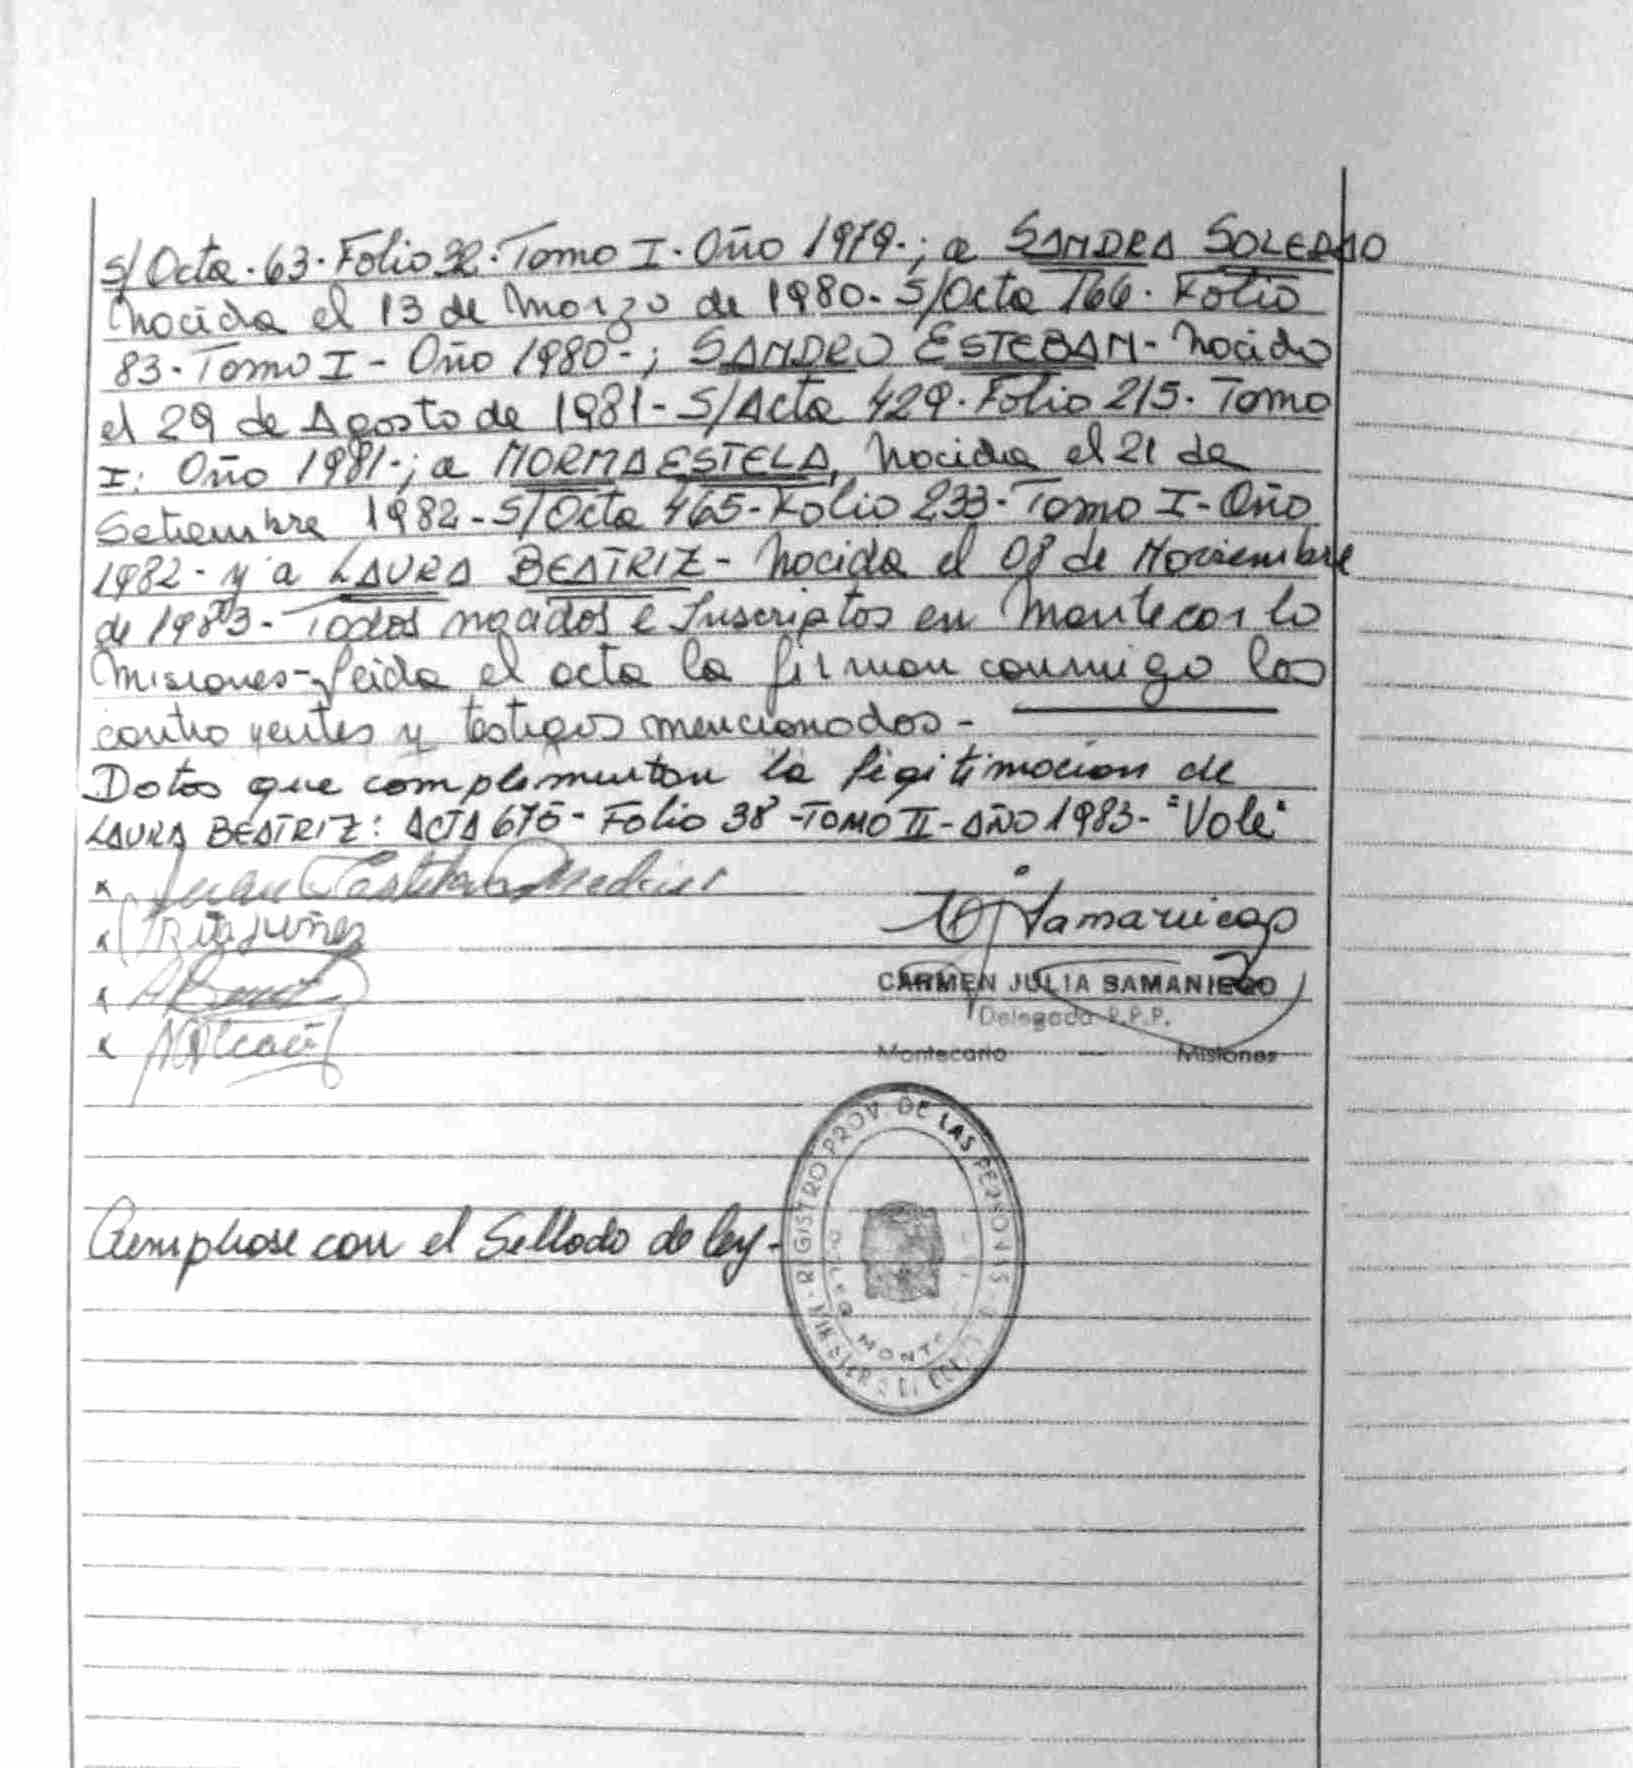 S/Acta. 63. Folio 32. Tomo I. Año 1979.; a SANDRA SOLEDAD
Nacida el 13 de Marzo de 1980. S/Acta 166. Folio
83. Tomo I - Año 1980-; SANDRO ESTEBAN - Nacido
el 29 de Agosto de 1981 - S/Acta 429. Folio 215. Tomo
I: Año 1981-; a NORMA ESTELA, Nacida el 21 de
Setiembre 1982 - S/Acta 465 - Folio 233 - Tomo I - Año
1982 - y a LAURA BEATRIZ - Nacida el 08 de Noviembre
de 1983 - Todos nacidos e Inscriptos en Montecarlo
Misiones - Leida el acta la firman conmigo los
contrayentes y testigos mencionados -
Datos que complementan la legitimacion de
LAURA BEATRIZ: ACTA 675 - Folio 38 - TOMO II - AÑO 1983 - "Vale"
x Juan Esteban
x Rita Nuñez
x
x
CARMEN JULIA SAMANIEGO
Delegada R.P.P.
Montecarlo Misiones
REGISTRO PROV. DE LAS PERSONAS
MONTE
Cumplase con el Sellado de ley -